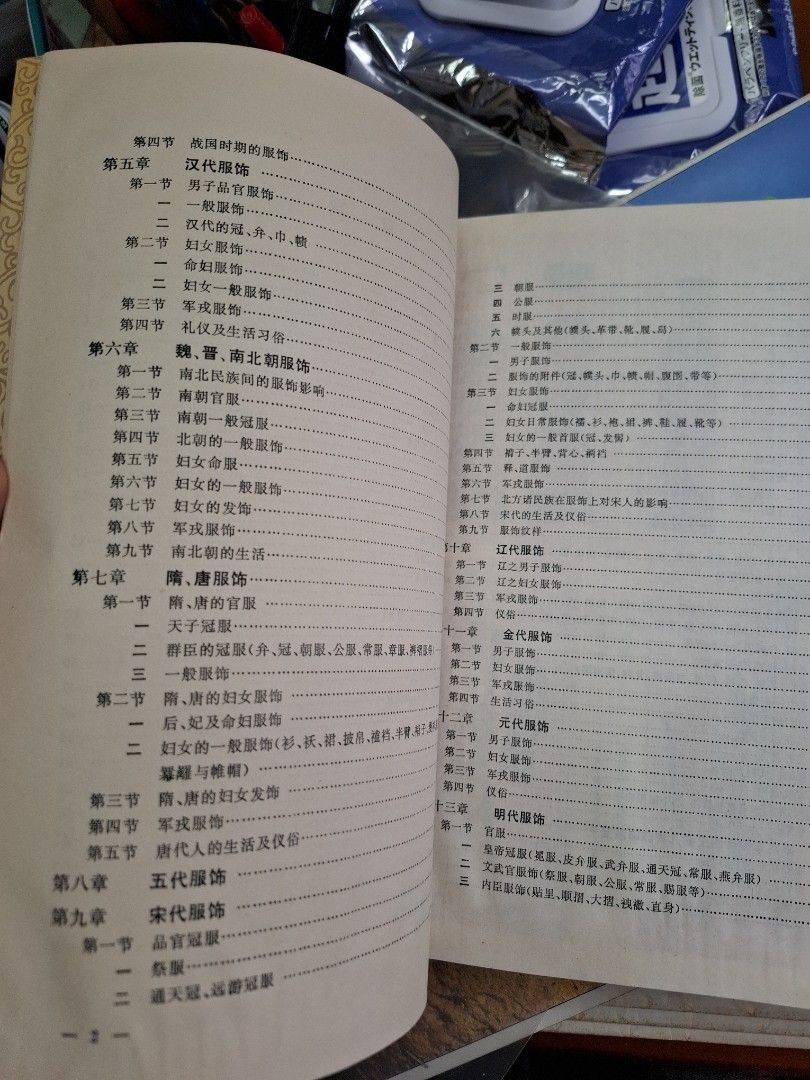 第四节 战国时期的服饰
第五章 汉代服饰
第一节 男子品官服饰
一 一般服饰
二 汉代的冠、弁、巾、帻
第二节 妇女服饰
一 命妇服饰
二 妇女一般服饰
第三节 军戎服饰
第四节 礼仪及生活习俗
第六章 魏、晋、南北朝服饰
第一节 南北民族间的服饰影响
第二节 南朝官服
第三节 南朝一般冠服
第四节 北朝的一般服饰
第五节 妇女命服
第六节 妇女的一般服饰
第七节 妇女的发饰
第八节 军戎服饰
第九节 南北朝的生活
第七章 隋、唐服饰
第一节 隋、唐的官服
一 天子冠服
二 群臣的冠服(弁、冠、朝服、公服、常服、章服、
三 一般服饰
第二节 隋、唐的妇女服饰
一 后、妃及命妇服饰
二 妇女的一般服饰(衫、袄、裙、披帛、裆、半臂、
羃䍦与帷帽)
第三节 隋、唐的妇女发饰
第四节 军戎服饰
第五节 唐代人的生活及仪俗
第八章 五代服饰
第九章 宋代服饰
第一节 品官冠服
一 祭服
二 通天冠、远游冠服
— 2 —
三 朝服
四 公服
五 时服
六 幞头及其他(幞头、革带、靴、履、舄)
第二节 一般服饰
一 男子服饰
二 服饰的附件(冠、幞头、巾、帻、帽、腹围、带等)
第三节 妇女服饰
一 命妇冠服
二 妇女日常服饰(襦、衫、袍、裙、裤、鞋、履、靴等)
三 妇女的一般首服(冠、发髻)
第四节 褙子、半臂、背心、裲裆
第五节 释、道服饰
第六节 军戎服饰
第七节 北方诸民族在服饰上对宋人的影响
第八节 宋代的生活及仪俗
第九节 服饰纹样
十章 辽代服饰
第一节 辽之男子服饰
第二节 辽之妇女服饰
第三节 军戎服饰
第四节 仪俗
十一章 金代服饰
第一节 男子服饰
第二节 妇女服饰
第三节 军戎服饰
第四节 生活习俗
十二章 元代服饰
第一节 男子服饰
第二节 妇女服饰
第三节 军戎服饰
第四节 仪俗
十三章 明代服饰
第一节 官服
一 皇帝冠服(冕服、皮弁服、武弁服、通天冠、常服、燕弁服)
二 文武官服饰(祭服、朝服、公服、常服、赐服等)
三 内臣服饰(贴里、顺摺、大摺、𧘽𧝞、直身)
除菌ウエットティシュ